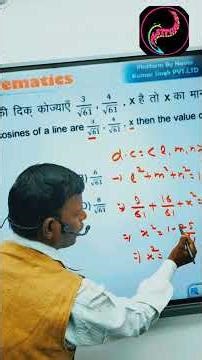 ematics
Platform By Naveen
Kumar Singh PVT.LTD
की दिक् कोज्याएँ 3/√61, 4/√61, x है तो x का मान
cosines of a line are 3/√61, 4/√61, x then the value o
d.c = (l, m, n
B) 6/√61
⇒ l²+m²+n²=1
D) 8/√61
⇒ 9/61 + 16/61 + x² =
⇒ x² = 1 - 25
⇒ x² =